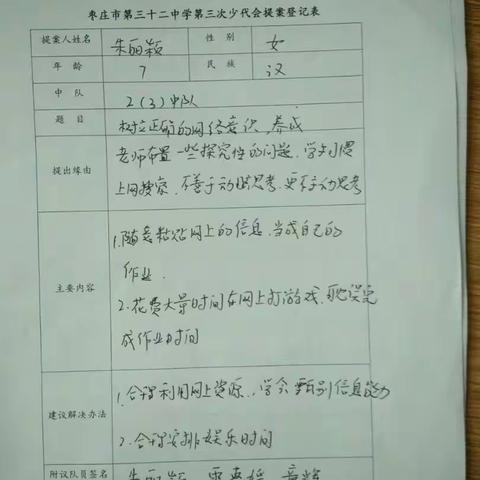 枣庄市第三十二中学第三次少代会提案登记表
提案人姓名 朱丽颖 性别 女
年龄 7 民族 汉
中队 2(3)中队
题目 树立正确的网络意识,养成
提出缘由 老师布置一些探究性的问题,学生习惯
上网搜索,不善于动脑思考,更不主动思考
主要内容 1.随意粘贴网上的信息,当成自己的
作业.
2.花费大量时间在网上打游戏,耽误完
成作业时间
建议解决办法 1.合理利用网上资源,学会甄别信息能力
2.合理安排娱乐时间
附议队员签名 朱丽颖